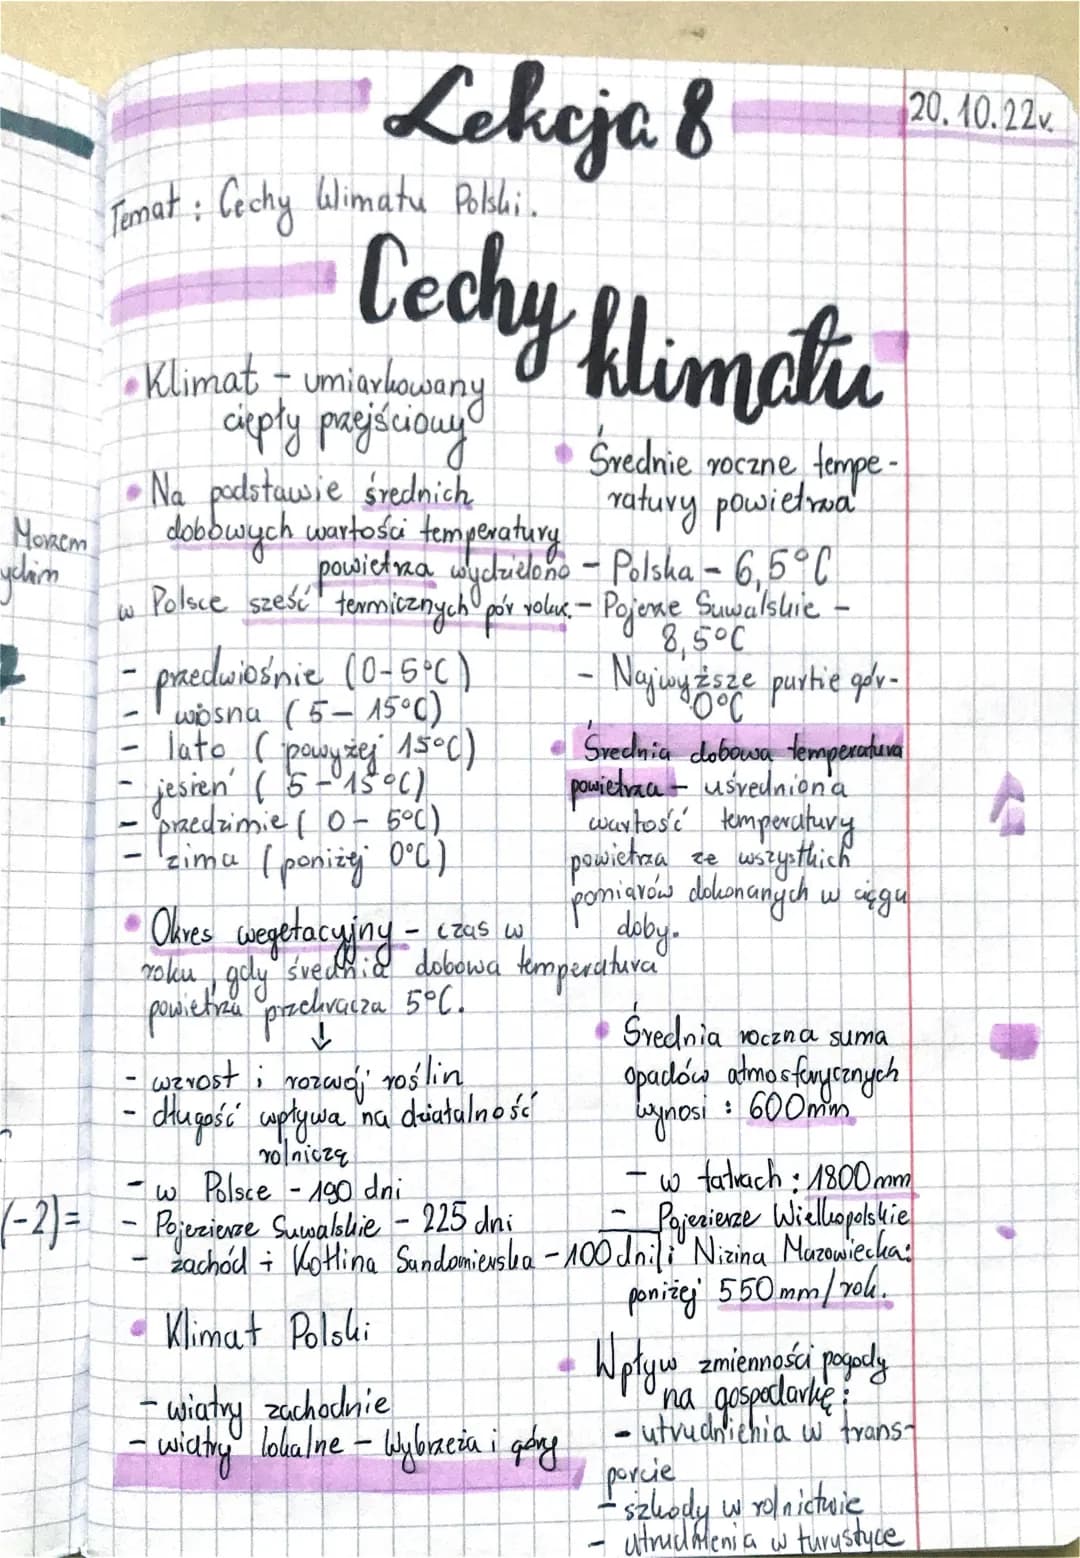 Lekcja 8
20.10.22r.
Temat: Cechy klimatu Polski.
Cechy klimatu
• Klimat - umiarkowany
ciepły przejściowy
• Na podstawie średnich
dobowych wartości temperatury
powietrza wydzielono
w Polsce sześć termicznych pór roku.
- przedwiośnie (0-5°C)
- wiosna (5-15°C)
- lato (powyżej 15°C)
- jesień (5-15°C)
- przedzimie (0-5°C)
- zima (poniżej 0°C)
• Okres wegetacyjny - czas w
roku, gdy średnia dobowa temperatura
powietrza przekracza 5°C.
↓
- wzrost i rozwój roślin
- długość wpływa na działalność
rolniczą
- w Polsce - 190 dni
- Pojezierze Suwalskie - 225 dni
- zachód i Kotlina Sandomierska - 100 dni
• Klimat Polski
- wiatry zachodnie
- wiatry lokalne - Wybrzeża i góry
• Średnie roczne tempe-
ratury powietrza
- Polska - 6,5°C
- Pojerze Suwalskie -
8,5°C
- Najwyższe partie gór-
0°C
• Średnia dobowa temperatura
powietrza - uśredniona
wartość temperatury
powietrza ze wszystkich
pomiarów dokonanych w ciągu
doby.
• Średnia roczna suma
opadów atmosferycznych
wynosi: 600mm
- w tatrach: 1800mm
- Pojezierze Wielkopolskie
i Nizina Mazowiecka:
poniżej 550mm/rok.
• Wpływ zmienności pogody
na gospodarkę:
- utrudnienia w trans-
porcie
- szkody w rolnictwie
- utrudnienia w turystyce
Morzem
(-2)=